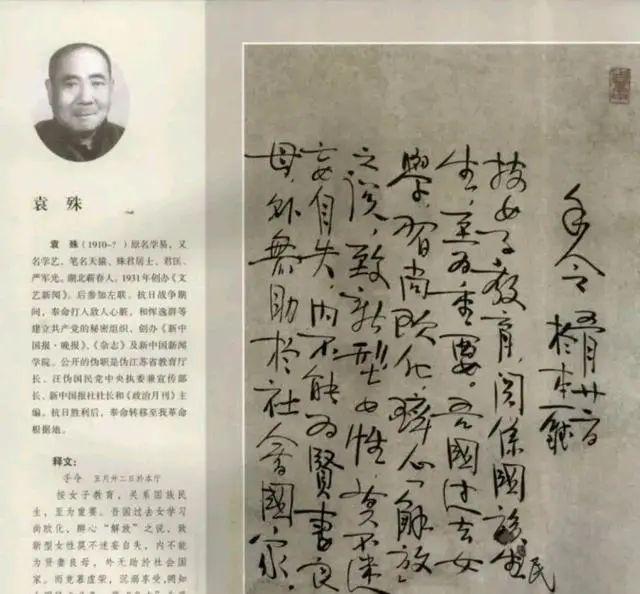 袁殊
袁 殊（1910-?）原名学易，又
名学艺、笔名天猿、殊君居士、君匡、
严军光。湖北蕲春人。1931年创办《文
艺新闻》。后参加左联。抗日战争期
间，奉命打入敌人心脏，和恽逸群等
建立共产党的秘密组织、创办《新中
国报·晚报》、《杂志》及新中国新闻
学院。公开的伪职是伪江苏省教育厅
长、汪伪国民党中央执委兼宣传部
长、新中国报社社长和《政治月刊》主
编。抗日胜利后，奉命转移至我革命
根据地。
释文：
手令 五月廿二日於本厅
按女子教育，关系国族民
生，至为重要。吾国过去女学习
尚欧化，醉心“解放”之说，致
新型女性莫不迷妄自失，内不能
为贤妻良母，外无助於社会国
家。而竟慕虚荣，沉溺享受，
手令
五月廿二日
於本厅
按女子教育，关係國族民
生，至为重要。吾國过去女
學，習尚欧化，醉心「解放」
之说，致新型女性，莫不迷
妄自失，内不能为賢妻良
母，外無助於社会國家，